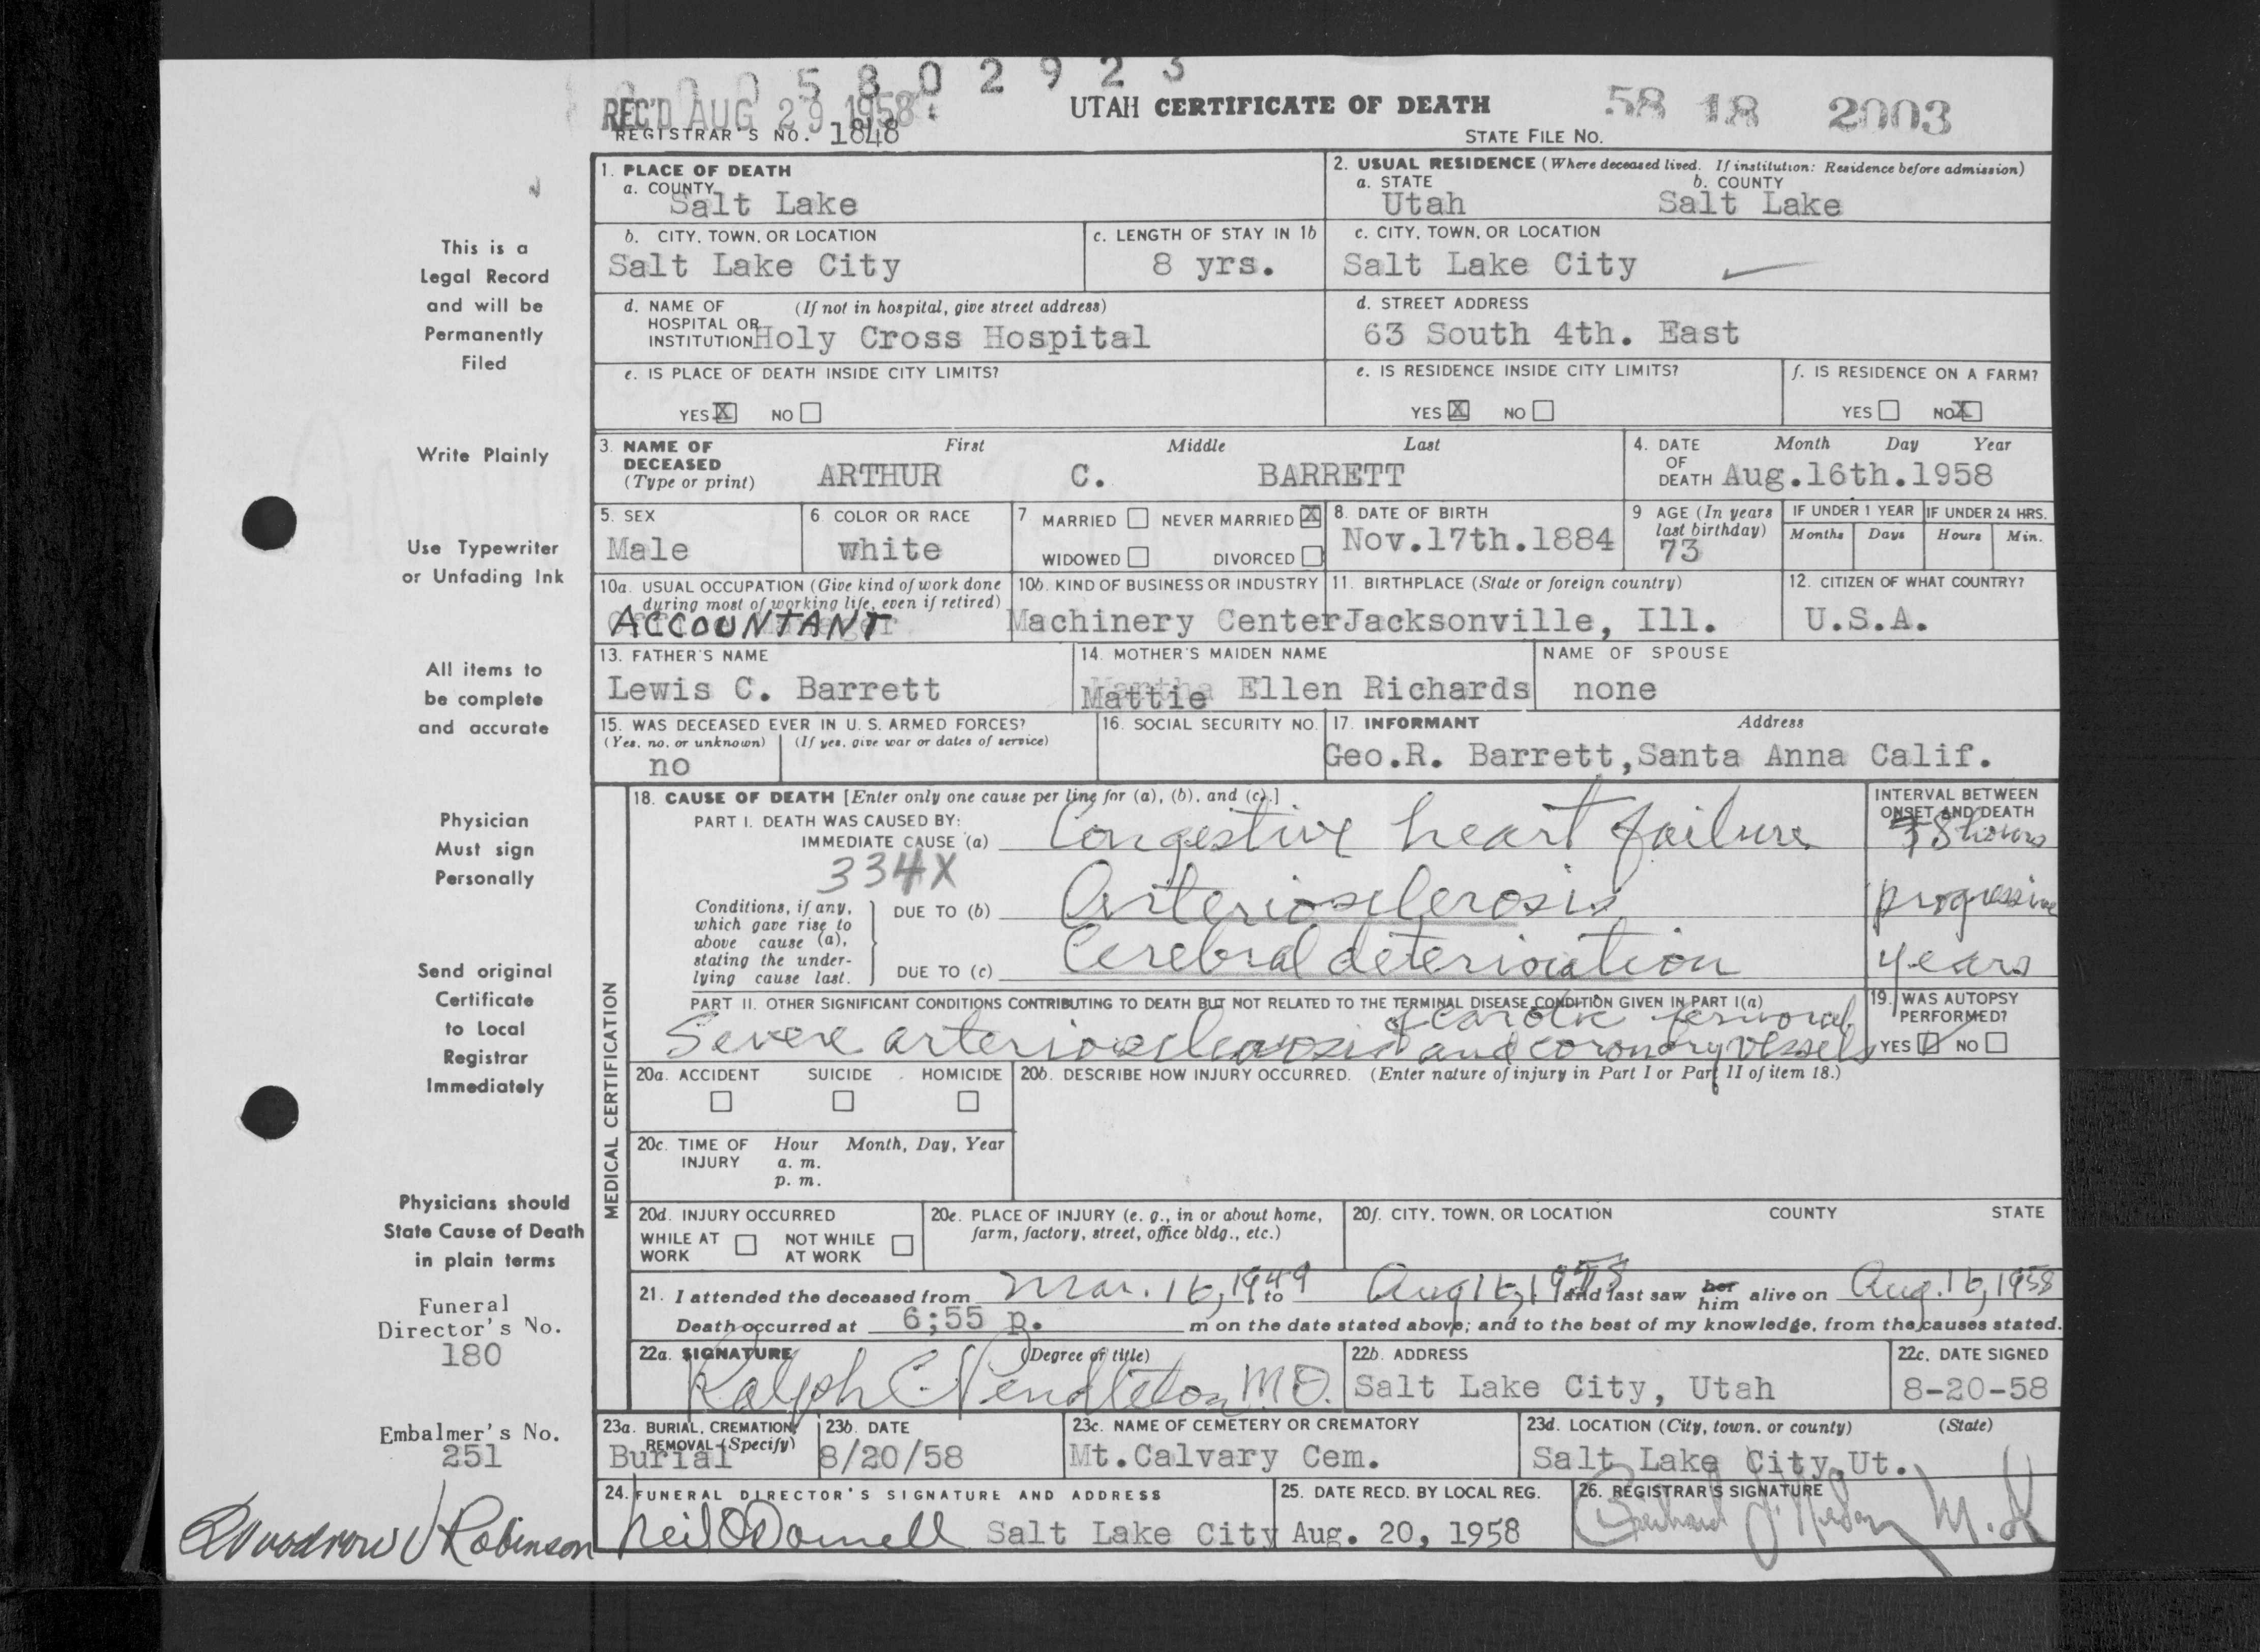 0 5 8 0 2 9 2 3
REC'D AUG 29 1958
UTAH CERTIFICATE OF DEATH
58 18 2003
REGISTRAR'S NO. 1848
STATE FILE NO.
1. PLACE OF DEATH
a. COUNTY
Salt Lake
2. USUAL RESIDENCE (Where deceased lived. If institution: Residence before admission)
a. STATE b. COUNTY
Utah Salt Lake
b. CITY, TOWN, OR LOCATION
Salt Lake City
c. LENGTH OF STAY IN 1b
8 yrs.
c. CITY, TOWN, OR LOCATION
Salt Lake City
d. NAME OF (If not in hospital, give street address)
HOSPITAL OR
INSTITUTION Holy Cross Hospital
d. STREET ADDRESS
63 South 4th. East
e. IS PLACE OF DEATH INSIDE CITY LIMITS?
YES X NO
e. IS RESIDENCE INSIDE CITY LIMITS?
YES X NO
f. IS RESIDENCE ON A FARM?
YES NO X
3. NAME OF First Middle Last
DECEASED
(Type or print) ARTHUR C. BARRETT
4. DATE Month Day Year
OF
DEATH Aug.16th.1958
5. SEX
Male
6 COLOR OR RACE
white
7 MARRIED NEVER MARRIED X
WIDOWED DIVORCED
8. DATE OF BIRTH
Nov.17th.1884
9 AGE (In years
last birthday)
73
IF UNDER 1 YEAR
Months Days
IF UNDER 24 HRS.
Hours Min.
10a. USUAL OCCUPATION (Give kind of work done
during most of working life, even if retired)
ACCOUNTANT
10b. KIND OF BUSINESS OR INDUSTRY
Machinery Center
11. BIRTHPLACE (State or foreign country)
Jacksonville, Ill.
12. CITIZEN OF WHAT COUNTRY?
U.S.A.
13. FATHER'S NAME
Lewis C. Barrett
14. MOTHER'S MAIDEN NAME
Mattie Ellen Richards
NAME OF SPOUSE
none
15. WAS DECEASED EVER IN U. S. ARMED FORCES?
(Yes, no, or unknown) (If yes, give war or dates of service)
no
16. SOCIAL SECURITY NO.
17. INFORMANT Address
Geo.R. Barrett,Santa Anna Calif.
MEDICAL CERTIFICATION
18. CAUSE OF DEATH [Enter only one cause per line for (a), (b), and (c).]
PART I. DEATH WAS CAUSED BY:
IMMEDIATE CAUSE (a) Congestive heart failure
INTERVAL BETWEEN
ONSET AND DEATH
hours
334X
Conditions, if any,
which gave rise to
above cause (a),
stating the under-
lying cause last.
DUE TO (b) Arteriosclerosis progressive
DUE TO (c) Cerebral deterioration years
PART II. OTHER SIGNIFICANT CONDITIONS CONTRIBUTING TO DEATH BUT NOT RELATED TO THE TERMINAL DISEASE CONDITION GIVEN IN PART I(a)
of carotic femoral
Severe arteriosclerosis and coronary vessels
19. WAS AUTOPSY
PERFORMED?
YES NO
20a. ACCIDENT SUICIDE HOMICIDE
20b. DESCRIBE HOW INJURY OCCURRED. (Enter nature of injury in Part I or Part II of item 18.)
20c. TIME OF Hour Month, Day, Year
INJURY a. m.
p. m.
20d. INJURY OCCURRED
WHILE AT NOT WHILE
WORK AT WORK
20e. PLACE OF INJURY (e. g., in or about home,
farm, factory, street, office bldg., etc.)
20f. CITY, TOWN, OR LOCATION COUNTY STATE
21. I attended the deceased from Mar. 16, 1949 to Aug 16, 1958 and last saw her him alive on Aug. 16, 1958
Death occurred at 6;55 p. m on the date stated above; and to the best of my knowledge, from the causes stated.
22a. SIGNATURE (Degree or title)
Ralph C. Pendleton M.D.
22b. ADDRESS
Salt Lake City, Utah
22c. DATE SIGNED
8-20-58
23a. BURIAL, CREMATION,
REMOVAL (Specify)
Burial
23b. DATE
8/20/58
23c. NAME OF CEMETERY OR CREMATORY
Mt.Calvary Cem.
23d. LOCATION (City, town, or county) (State)
Salt Lake City,Ut.
24. FUNERAL DIRECTOR'S SIGNATURE AND ADDRESS
Neil O'Donnell Salt Lake City
25. DATE RECD. BY LOCAL REG.
Aug. 20, 1958
26. REGISTRAR'S SIGNATURE
This is a
Legal Record
and will be
Permanently
Filed
Write Plainly
Use Typewriter
or Unfading Ink
All items to
be complete
and accurate
Physician
Must sign
Personally
Send original
Certificate
to Local
Registrar
Immediately
Physicians should
State Cause of Death
in plain terms
Funeral
Director's No.
180
Embalmer's No.
251
Woodrow J Robinson